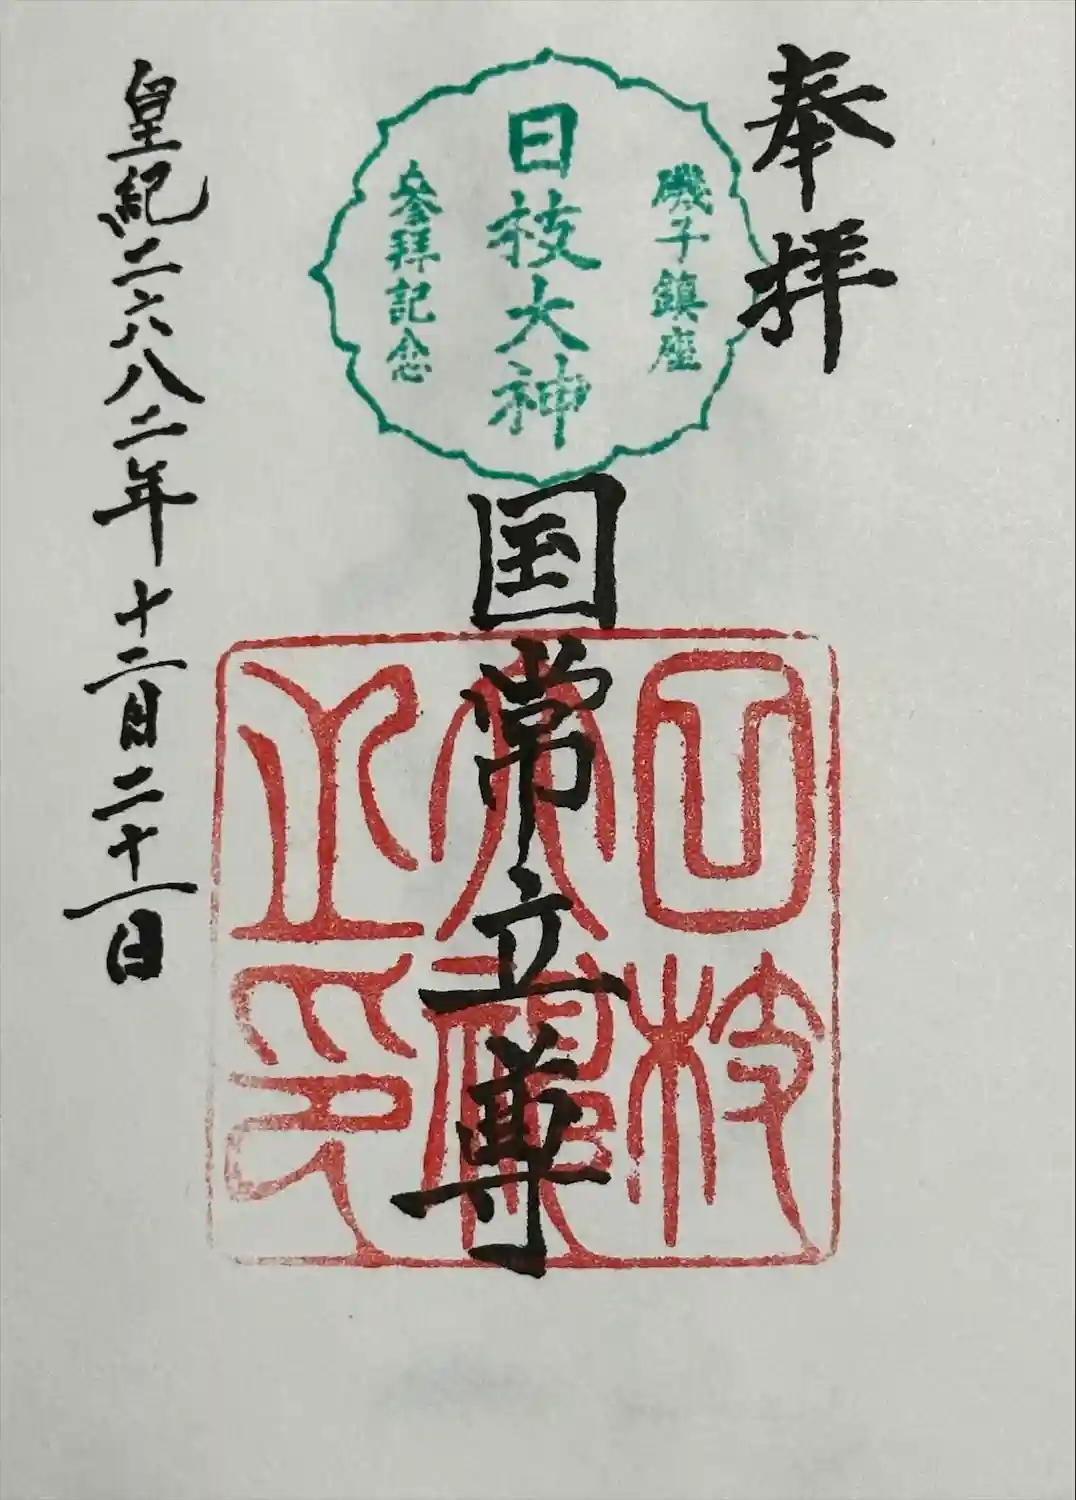 奉拝
磯子鎮座
日枝大神
参拝記念
国常立尊
日枝
大神
之印
皇紀二六八二年十二月二十一日